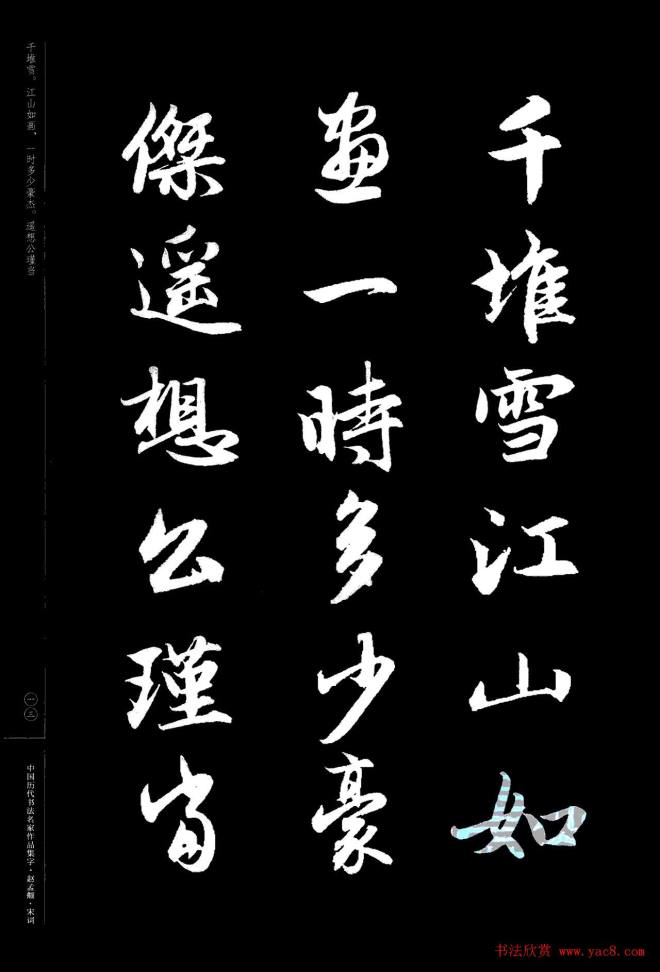 千堆雪江山如
畫一時多少豪
傑遥想公瑾當
千堆雪。江山如画，一时多少豪杰。遥想公瑾当
一三
中国历代书法名家作品集字·赵孟頫·宋词
书法欣赏 www.yac8.com